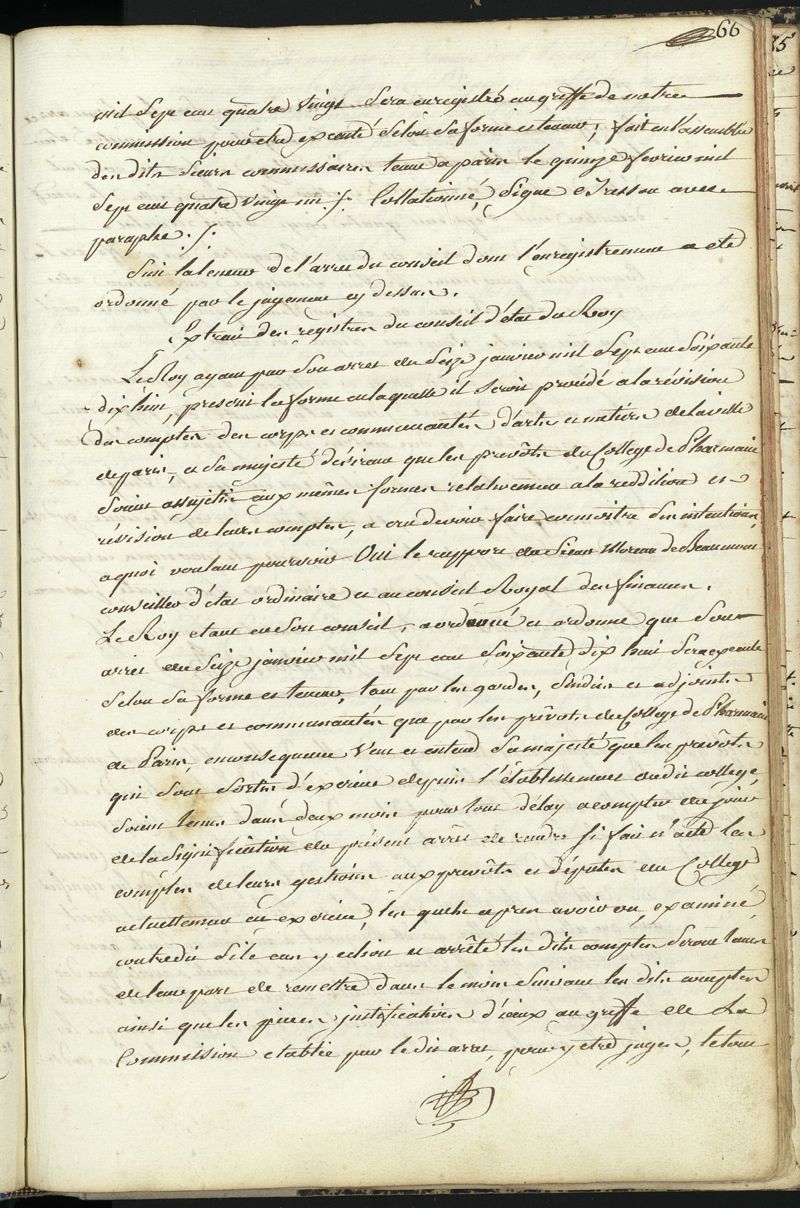 66
mil sept cent quatre vingt sera enregistré au greffe de notre
commission pour etre executé selon sa forme et teneur, fait en l'assemblée
des dits sieurs commissaires tenue a paris le quinze fevrier mil
sept cent quatre vingt un ·/. Collationné, Signé avec
paraphe ·/.
Suit la teneur de l'arret du conseil dont l'enregistrement a eté
ordonné par le jugement cy dessus.
Extrait des registres du conseil d'état du Roy
Le Roy ayant par son arret du Seize janvier mil Sept cent Soixante
dix huit, prescrit la forme en laquelle il seroit procédé a la révision
des comptes des corps et communautés d'arts et metiers de la ville
de paris, et Sa majesté désirant que les prevôts du College de Pharmacie
soient assujétis aux mêmes formes relativement a la reddition et
révision de leurs comptes, a cru devoir faire connoitre ses intentions,
a quoi voulant pourvoir Oui le rapport du Sieur Moreau de Beaumont
conseiller d'état ordinaire et au conseil Royal des finances.
Le Roy etant en son conseil, a ordonné et ordonne que son
arret du Seize janvier mil Sept cent Soixante dix huit sera executé
selon sa forme et teneur, tant par les gardes, Sindics et adjoints
des corps et communautés que par les prévôts du College de Pharmacie
de Paris, en consequence Veut et entend Sa majesté que les prevôts
qui sont sortis d'exercice depuis l'établissement dudit college,
soient tenus dans deux mois pour tout delay a compter du jour
de la signification du présent arrêt de rendre si fait n'a eté les
comptes de leurs gestions aux prevôts et députés du College
actuellement en exercice, les quels apres avoir vu, examiné,
contredit s'il en y echoit et arrêté les dits comptes seront tenus
de leur part de remettre dans le mois suivant les dits comptes
ainsi que les pieces justificatives d'iceux au greffe de La
Commission etablie par le dit arret, pour y etre jugés, le tout